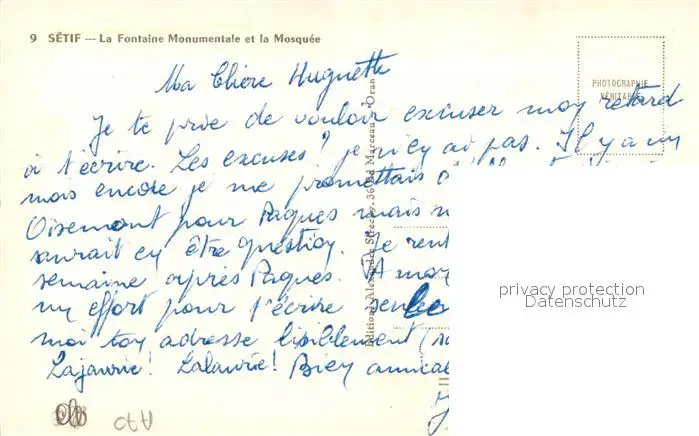 9 SÉTIF — La Fontaine Monumentale et la Mosquée
PHOTOGRAPHIE
VÉRITABLE
Ma Chère Huguette
Je te prie de vouloir excuser mon retard
à t'écrire. Les excuses? je n'en ai pas. Il y a un
mois encore je me promettais
Oisemont pour Pâques mais
saurait en être question. Je
semaine après Pâques. A
un effort pour t'écrire
moi ton adresse lisiblement
Lajaunie! Lalaurie! Bien
Editions Alexandre
Marceau - Oran
privacy protection
Datenschutz